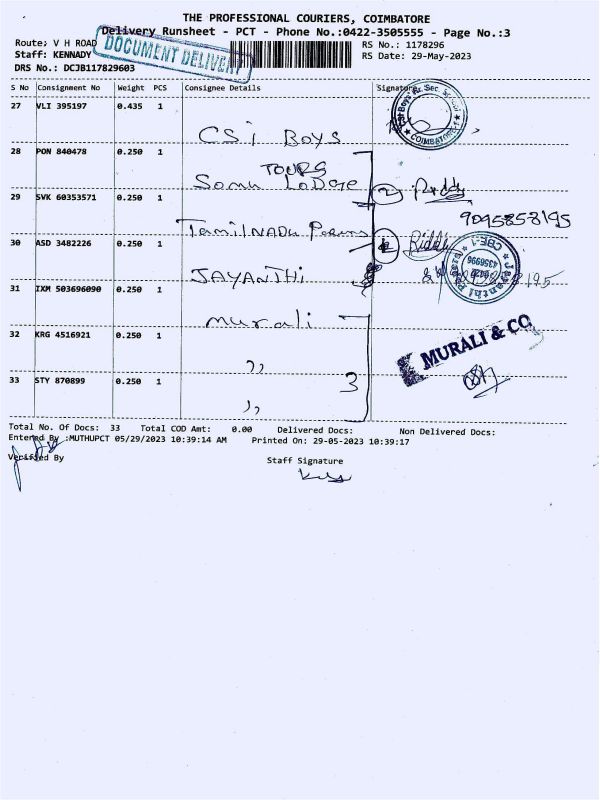 THE PROFESSIONAL COURIERS, COIMBATORE
Delivery Runsheet - PCT - Phone No.:0422-3505555 - Page No.:3
Route: V H ROAD
DOCUMENT DELIVERY
RS No.: 1178296
Staff: KENNADY
RS Date: 29-May-2023
DRS No.: DCJB117829603
S No Consignment No Weight PCS Consignee Details Signature
27 VLI 395197 0.435 1
CSi BOYS
28 PON 840478 0.250 1
TOURS
29 SVK 60353571 0.250 1
9095858195
TamilNADu
30 ASD 3482226 0.250 1
JAYANTHi
31 IXM 503696090 0.250 1
murali
32 KRG 4516921 0.250 1
MURALI & CO
,,
33 STY 870899 0.250 1
3
,,
Total No. Of Docs: 33 Total COD Amt: 0.00 Delivered Docs: Non Delivered Docs:
Entered By :MUTHUPCT 05/29/2023 10:39:14 AM Printed On: 29-05-2023 10:39:17
Verified By
Staff Signature